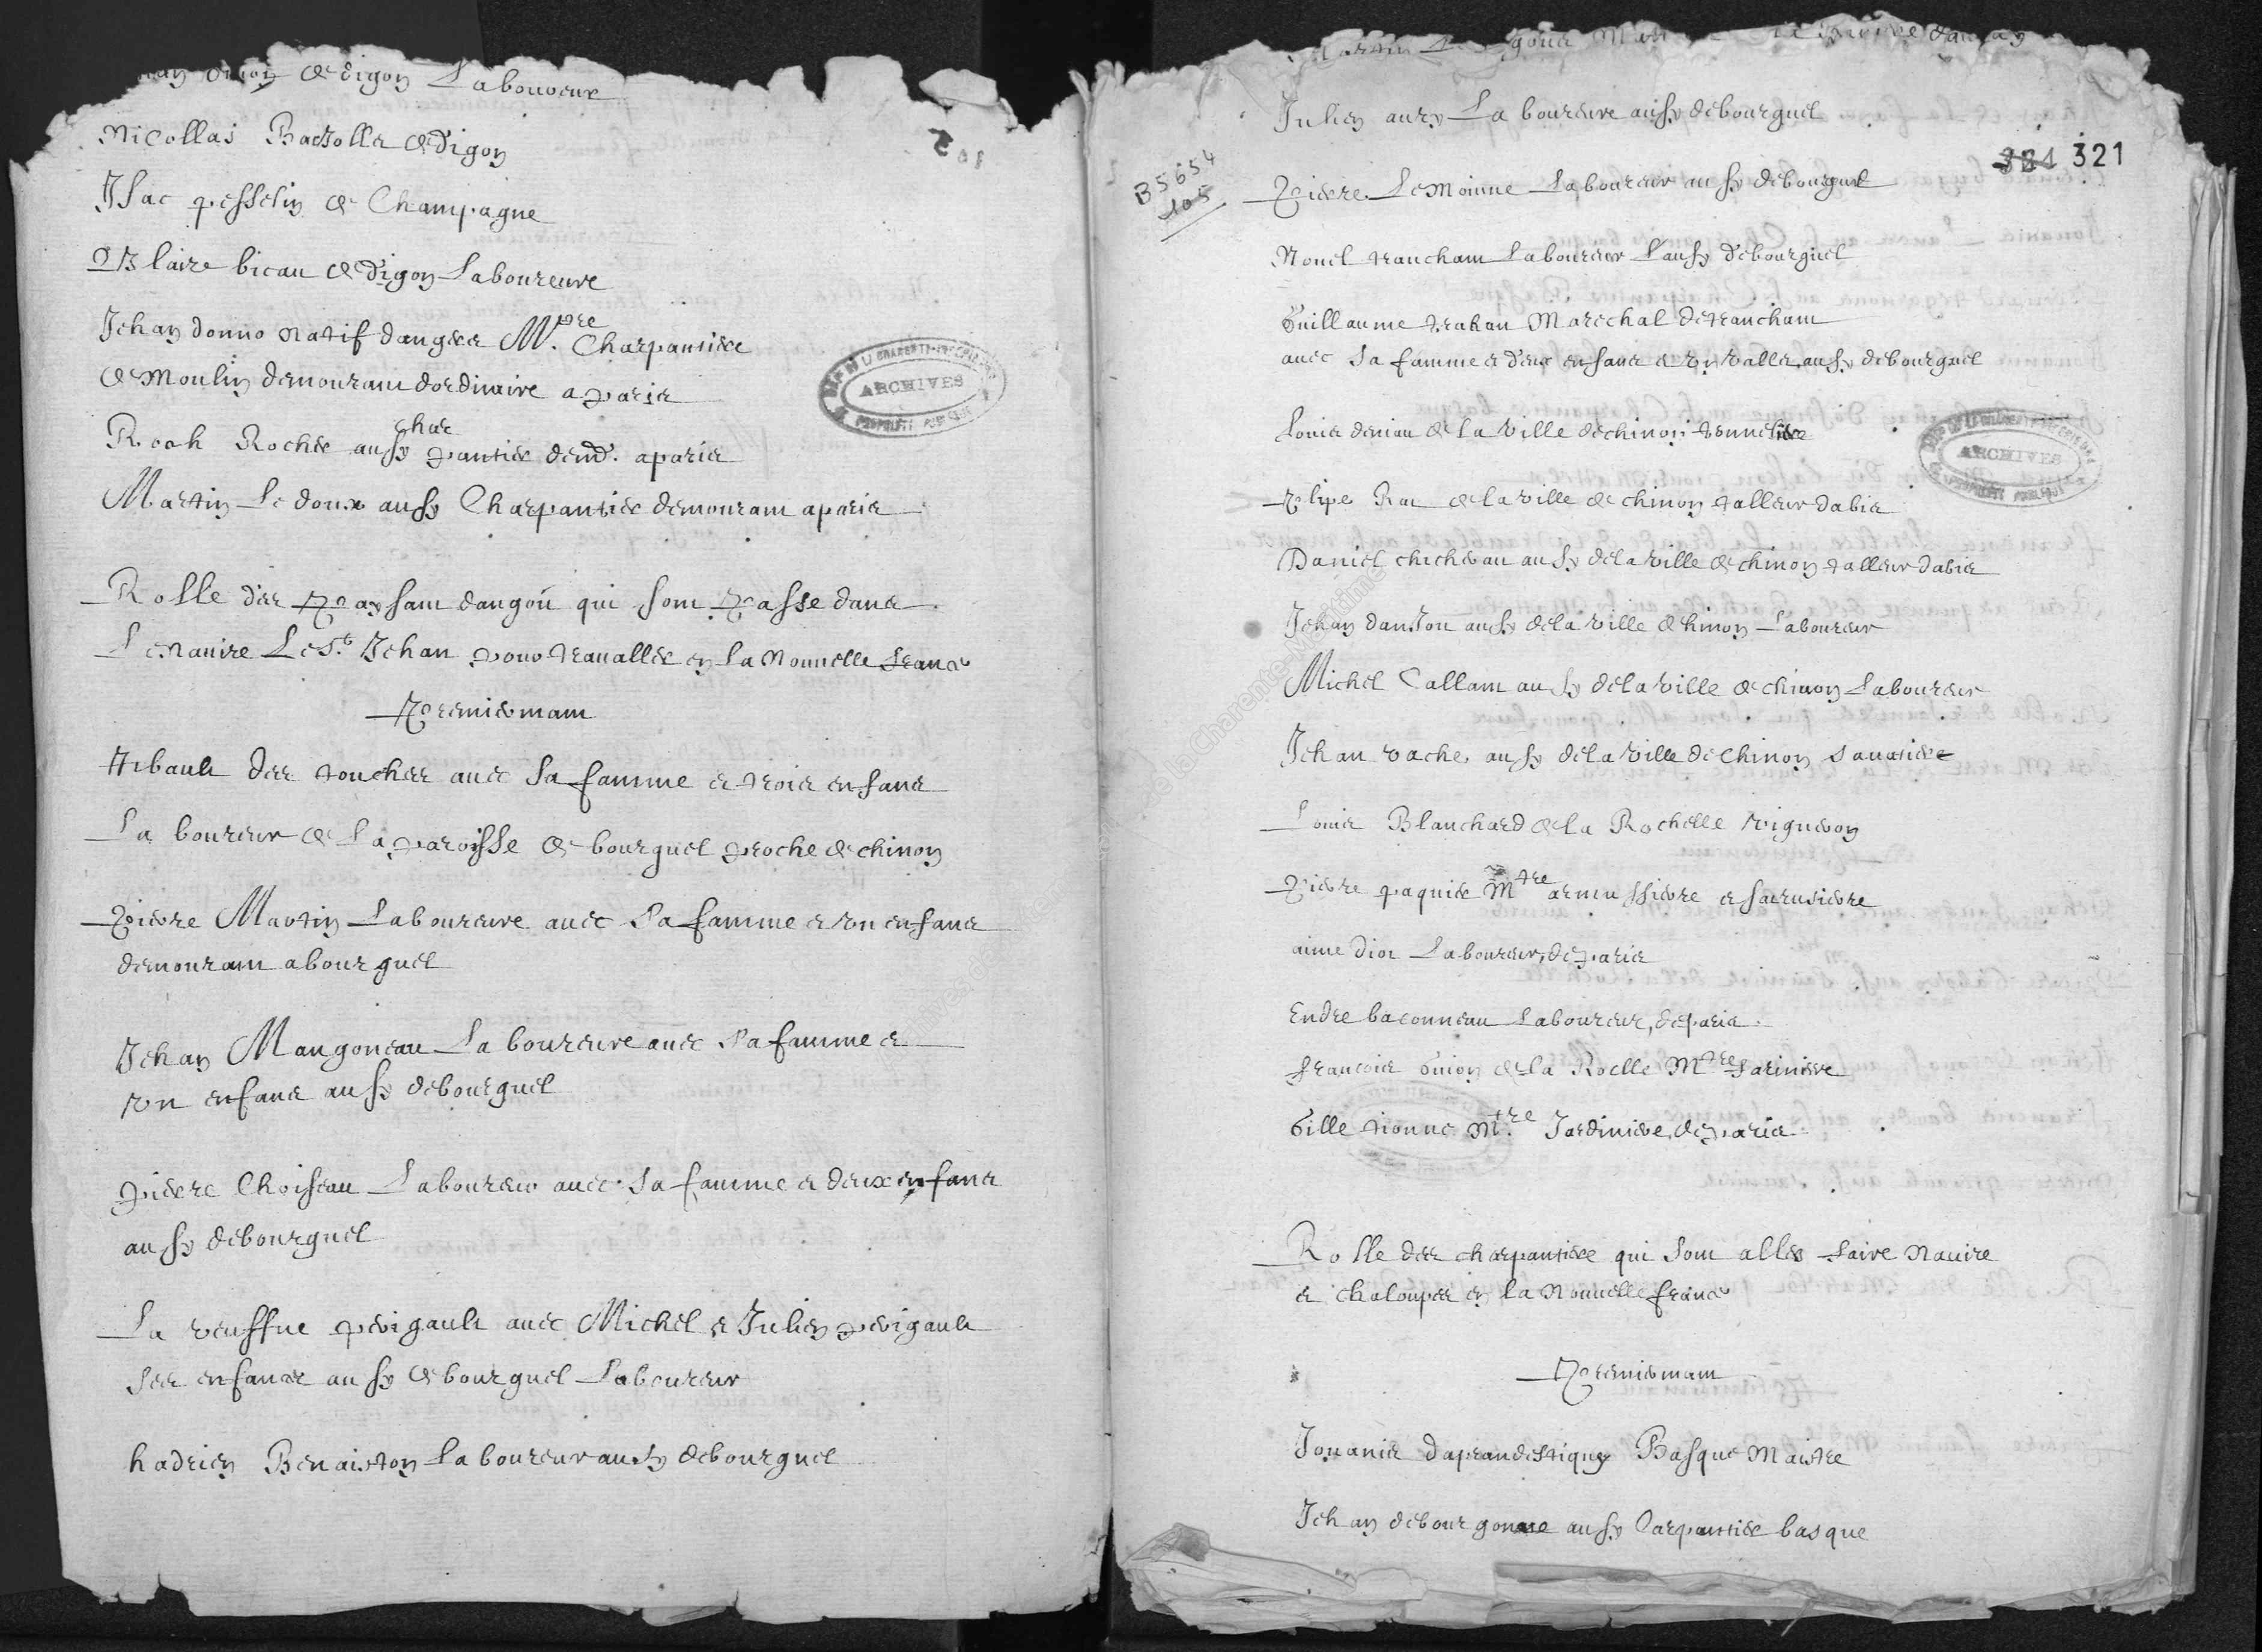 de digon Laboureur
Nicollas Badolle de digon
Isac pesselin de Champagne
Blaire bicau de digon Laboureure
Jehan donno natif danger M.tre Charpantier
de Moulin demouram dordinaire a paris
Rooh Rocher aussy charpantier dem. a paris
Martin Le doux aussy Charpantier demouram a paris
Rolle des paysam dangou qui som passe dans
Le navire Le St. Jehan pour travaller en la Nouvelle france
premieremam
tibault des touches avec sa famme et trois enfans
La boureur de La paroisse de bourguel proche de chinon
pierre Martin Laboureure avec sa famme et un enfans
demouram a bourguel
Jehan Mangoneau La boureure avec sa famme et
un enfans aussy de bourguel
pierre Choiseau Laboureur avec sa famme et deux enfans
aussy de bourguel
La veuffue perigault avec Michel et Julien perigault
ses enfans aussy de bourguel Laboureur
hadrien Benaiston La boureur aussy de bourguel
Julien aury La boureure aussy de bourguel
B 5654
105
321 321
pierre Le Moinne Laboureur aussy de bourguel
Nouel trancham Laboureur aussy de bourguel
Guillaume trahan Marechal de trancham
avec sa famme et deux enfans et un valle aussy de bourguel
Louis deniau de la ville de chinon tonnelier
plipe Rau de la ville de chinon talleur dabis
Daniel chicheuau aussy de la ville de chinon talleur dabis
Jehan danson aussy de la ville de chinon Laboureur
Michel Callam aussy de la ville de chinon Laboureur
Jehan vache aussy de la ville de Chinon savatier
Louis Blanchard de la Rochelle vigneron
pierre paquie M.tre armussiere et sarrusiere
aime dion Laboureur, de paris
Endre baconneau Laboureur, de paris
francois Guion de la Roelle M.tre farinier
Gille tionne M.tre Jardiniere, de paris
Rolle des charpantier qui som alles faire Navire
et chaloupes en la Nouvelle france
premieremam
Jouanis daprandestiguy Basque Maistre
Jehan de bourgonne aussy Carpantier basque
ARCHIVES
ARCHIVES